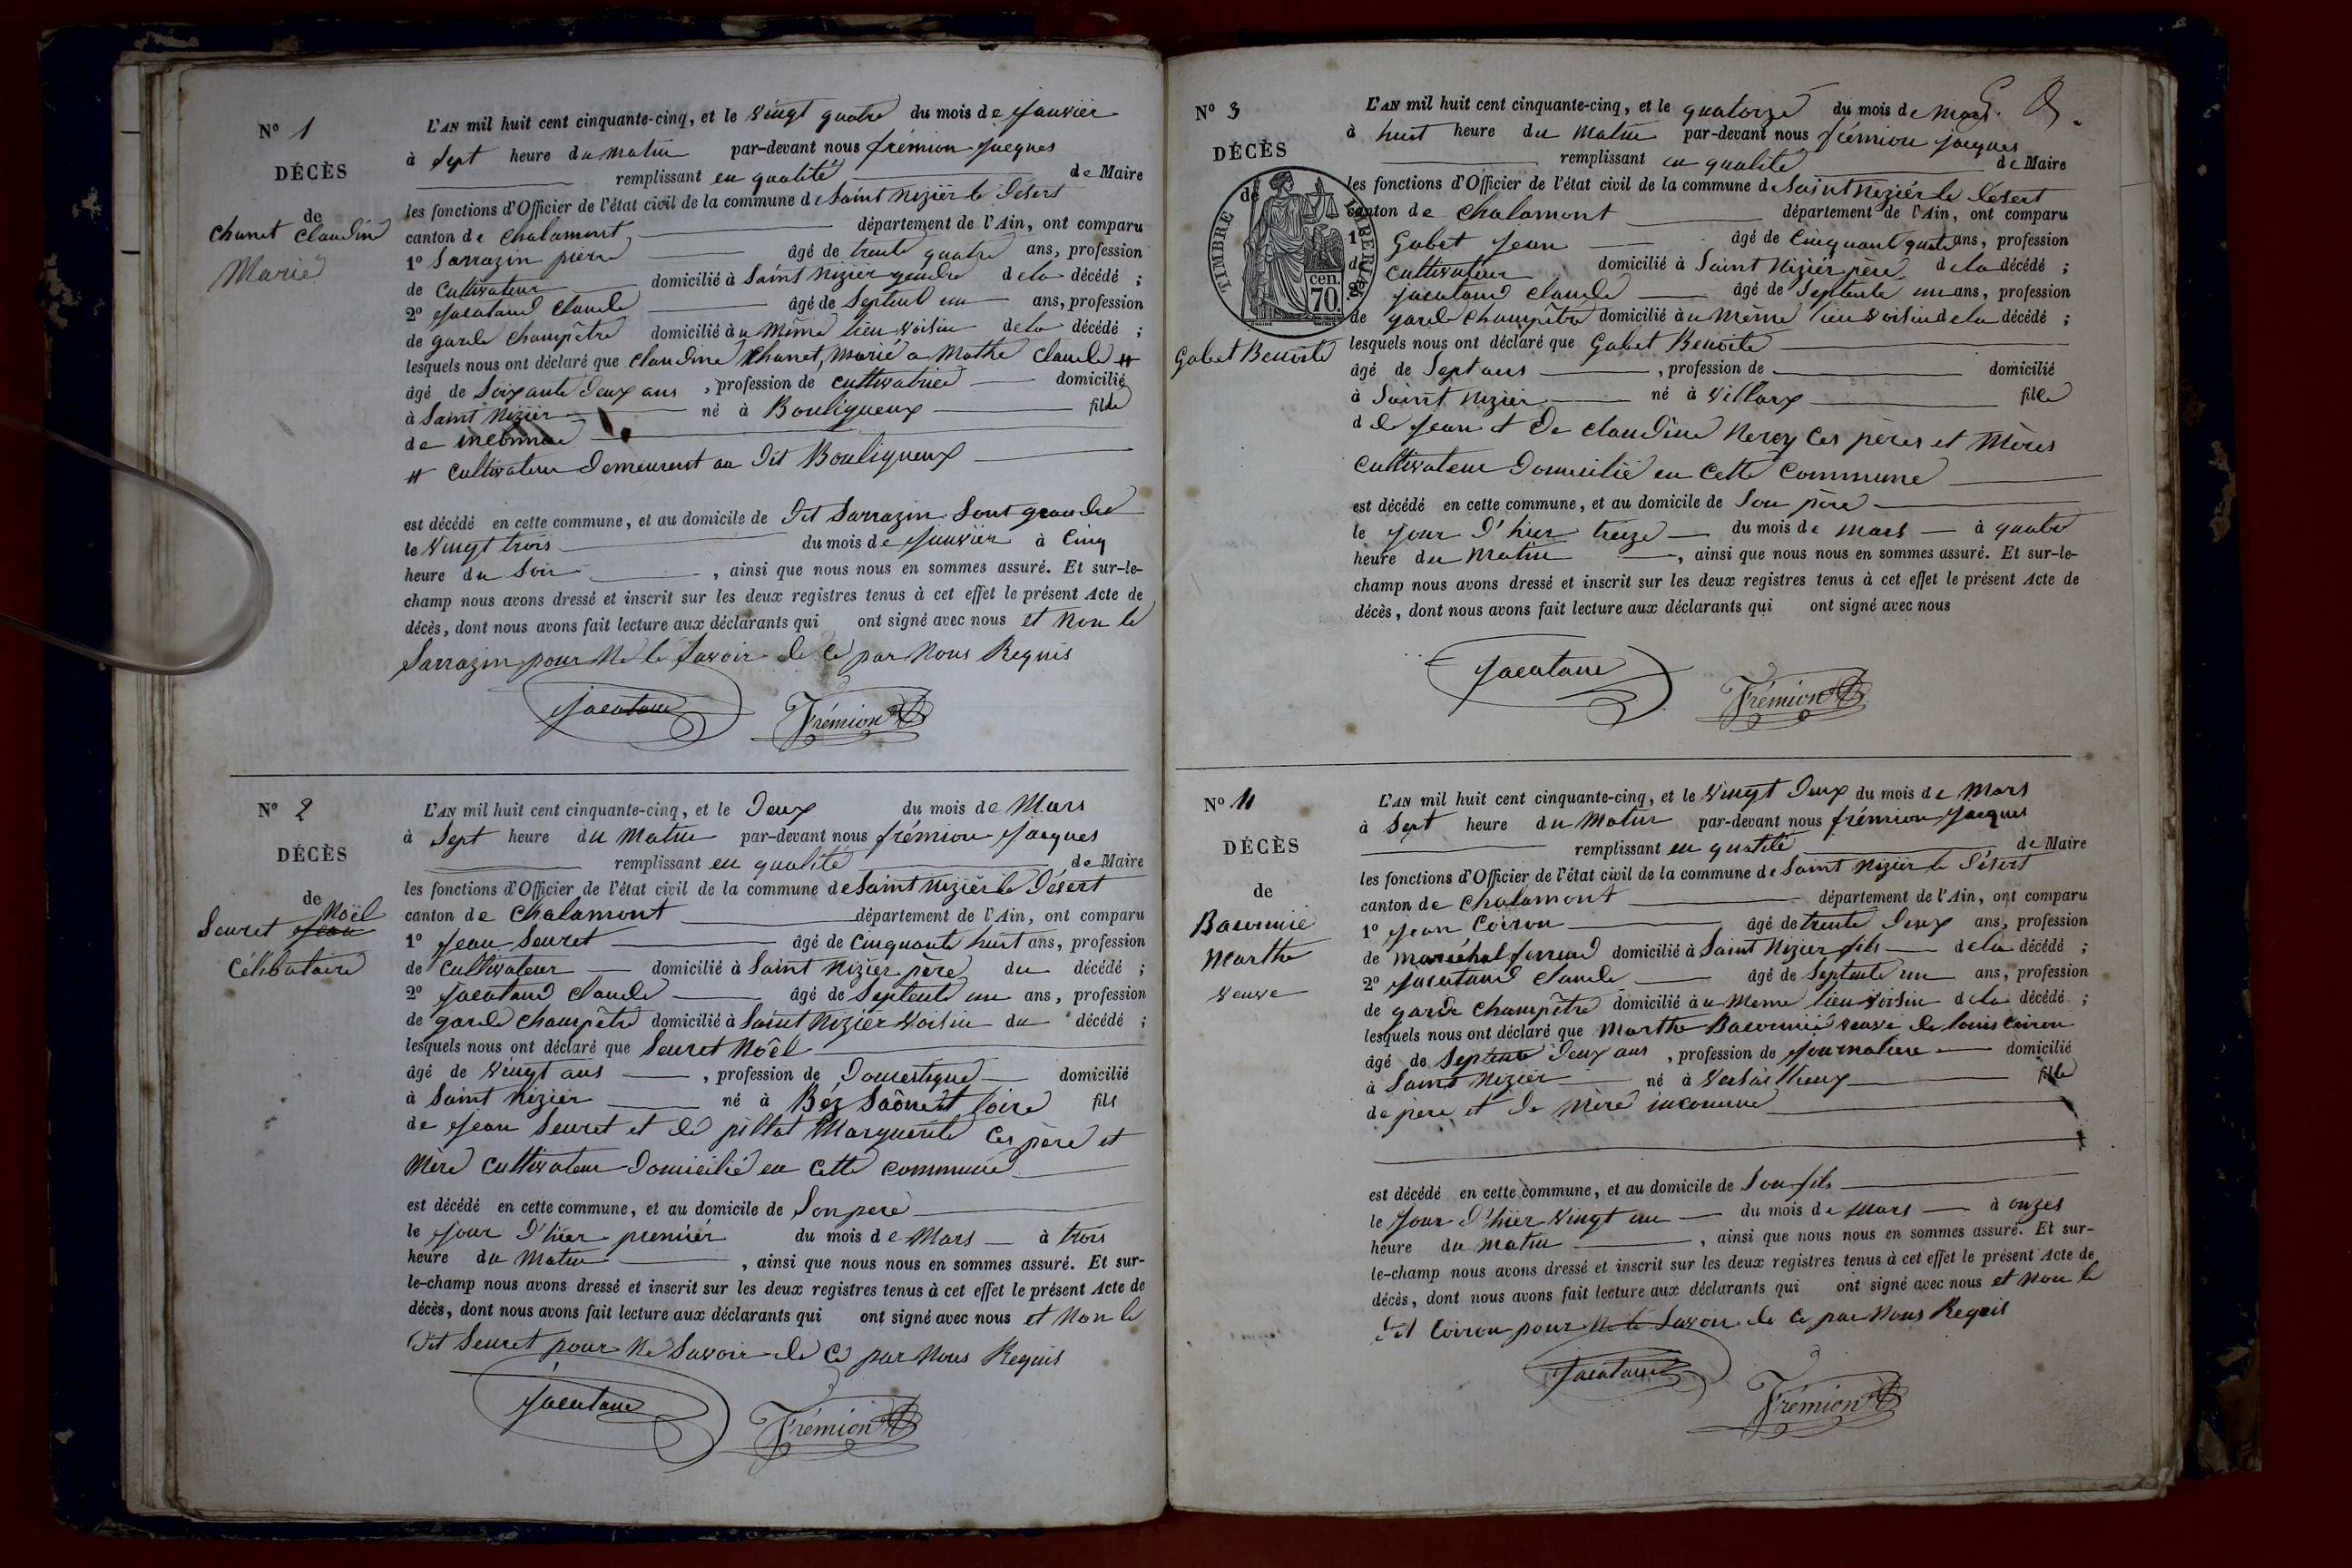 N° 1
DÉCÈS
de
Chanet Claudine
Marié
L'AN mil huit cent cinquante-cinq, et le vingt quatre du mois de Janvier
à Sept heure du matin par-devant nous frémion Jacques
remplissant en qualité de Maire
les fonctions d'Officier de l'état civil de la commune de Saint Nizier le Désert
canton de Chalamont département de l'Ain, ont comparu
1° Sarrazin pierre âgé de trente quatre ans, profession
de Cultivateur domicilié à Saint Nizier gendre de la décédé ;
2° Jacataud Claude âgé de Septente un ans, profession
de garde Champêtre domicilié à u même lieu voisin de la décédé ;
lesquels nous ont déclaré que Claudine Chanet, marié a Mathe Claude #
âgé de Soixante Deux ans , profession de cultivatrice domicilié
à Saint Nizier né à Bouligneux fille
de inconnue
# cultivateur demeurent au dit Bouligneux
est décédé en cette commune, et au domicile de dit Sarrazin Sont gendre
le vingt trois du mois de Janvier à Cinq
heure du Soir , ainsi que nous nous en sommes assuré. Et sur-le-
champ nous avons dressé et inscrit sur les deux registres tenus à cet effet le présent Acte de
décès, dont nous avons fait lecture aux déclarants qui ont signé avec nous et Non le
Sarrazin pour Ne le Savoir de Ce par Nous Requis
Jacataud Frémion
N° 2
DÉCÈS
de
Noël
Seuret Jean
Célibataire
L'AN mil huit cent cinquante-cinq, et le Deux du mois de Mars
à Sept heure du Matin par-devant nous frémion Jacques
remplissant en qualité de Maire
les fonctions d'Officier de l'état civil de la commune de Saint Nizier le Désert
canton de Chalamont département de l'Ain, ont comparu
1° Jean Seuret âgé de Cinquante huit ans, profession
de Cultivateur domicilié à Saint Nizier père du décédé ;
2° Jacataud Claude âgé de Septente un ans, profession
de garde Champêtre domicilié à Saint Nizier Voisin du décédé ;
lesquels nous ont déclaré que Seuret Noël
âgé de Vingt ans , profession de Domestique domicilié
à Saint Nizier né à Bez Saône et loire fils
de Jean Seuret et de pillat Marguerite Ces père et
Mère Cultivateur Domicilié en Cette Commune
est décédé en cette commune, et au domicile de Son pere
le Jour D'hier premier du mois de Mars à trois
heure du Matin , ainsi que nous nous en sommes assuré. Et sur-
le-champ nous avons dressé et inscrit sur les deux registres tenus à cet effet le présent Acte de
décès, dont nous avons fait lecture aux déclarants qui ont signé avec nous et Non le
Dit Seuret pour Ne Savoir de Ce par Nous Requis
Jacataud Frémion
N° 3
DÉCÈS
de
TIMBRE
cen. 70.
Gabet Benoite
L'AN mil huit cent cinquante-cinq, et le quatorze du mois de Mars
à huit heure du Matin par-devant nous frémion Jacques
remplissant en qualité de Maire
les fonctions d'Officier de l'état civil de la commune de Saint Nizier le Désert
canton de Chalamont département de l'Ain, ont comparu
1° Gabet Jean âgé de Cinquante quatre ans, profession
de Cultivateur domicilié à Saint Nizier père de la décédé ;
2° Jacataud Claude âgé de Septente un ans, profession
de garde Champêtre domicilié à u même lieu Voisin de la décédé ;
lesquels nous ont déclaré que Gabet Benoite
âgé de Sept ans , profession de domicilié
à Saint Nizier né à Villars fille
de Jean & De Claudine Nerey Ces pères et Mères
Cultivateur Domicilié en Cette Commune
est décédé en cette commune, et au domicile de Son père
le Jour D'hier treize du mois de Mars à quatre
heure du Matin , ainsi que nous nous en sommes assuré. Et sur-le-
champ nous avons dressé et inscrit sur les deux registres tenus à cet effet le présent Acte de
décès, dont nous avons fait lecture aux déclarants qui ont signé avec nous
Jacataud Frémion
N° 4
DÉCÈS
de
Bacounié
Marthe
Veuve
L'AN mil huit cent cinquante-cinq, et le Vingt Deux du mois de Mars
à Sept heure du Matin par-devant nous frémion Jacques
remplissant en qualité de Maire
les fonctions d'Officier de l'état civil de la commune de Saint Nizier le Désert
canton de Chalamont département de l'Ain, ont comparu
1° Jean Coiron âgé de trente Deux ans, profession
de maréchal ferrend domicilié à Saint Nizier fils de la décédé ;
2° Jacataud Claude âgé de Septente un ans, profession
de garde Champêtre domicilié à u Même lieu Voisin de la décédé ;
lesquels nous ont déclaré que Marthe Bacounié veuve de louis Coiron
âgé de Septente Deux ans , profession de Journaliere domicilié
à Saint Nizier né à Versailleux fille
de père et De Mère inconnue
est décédé en cette commune, et au domicile de Son fils
le Jour D'hier Vingt un du mois de Mars à onzes
heure du Matin , ainsi que nous nous en sommes assuré. Et sur-
le-champ nous avons dressé et inscrit sur les deux registres tenus à cet effet le présent Acte de
décès, dont nous avons fait lecture aux déclarants qui ont signé avec nous et Non le
Dit Coiron pour Ne le Savoir de Ce par Nous Requis
Jacataud Frémion